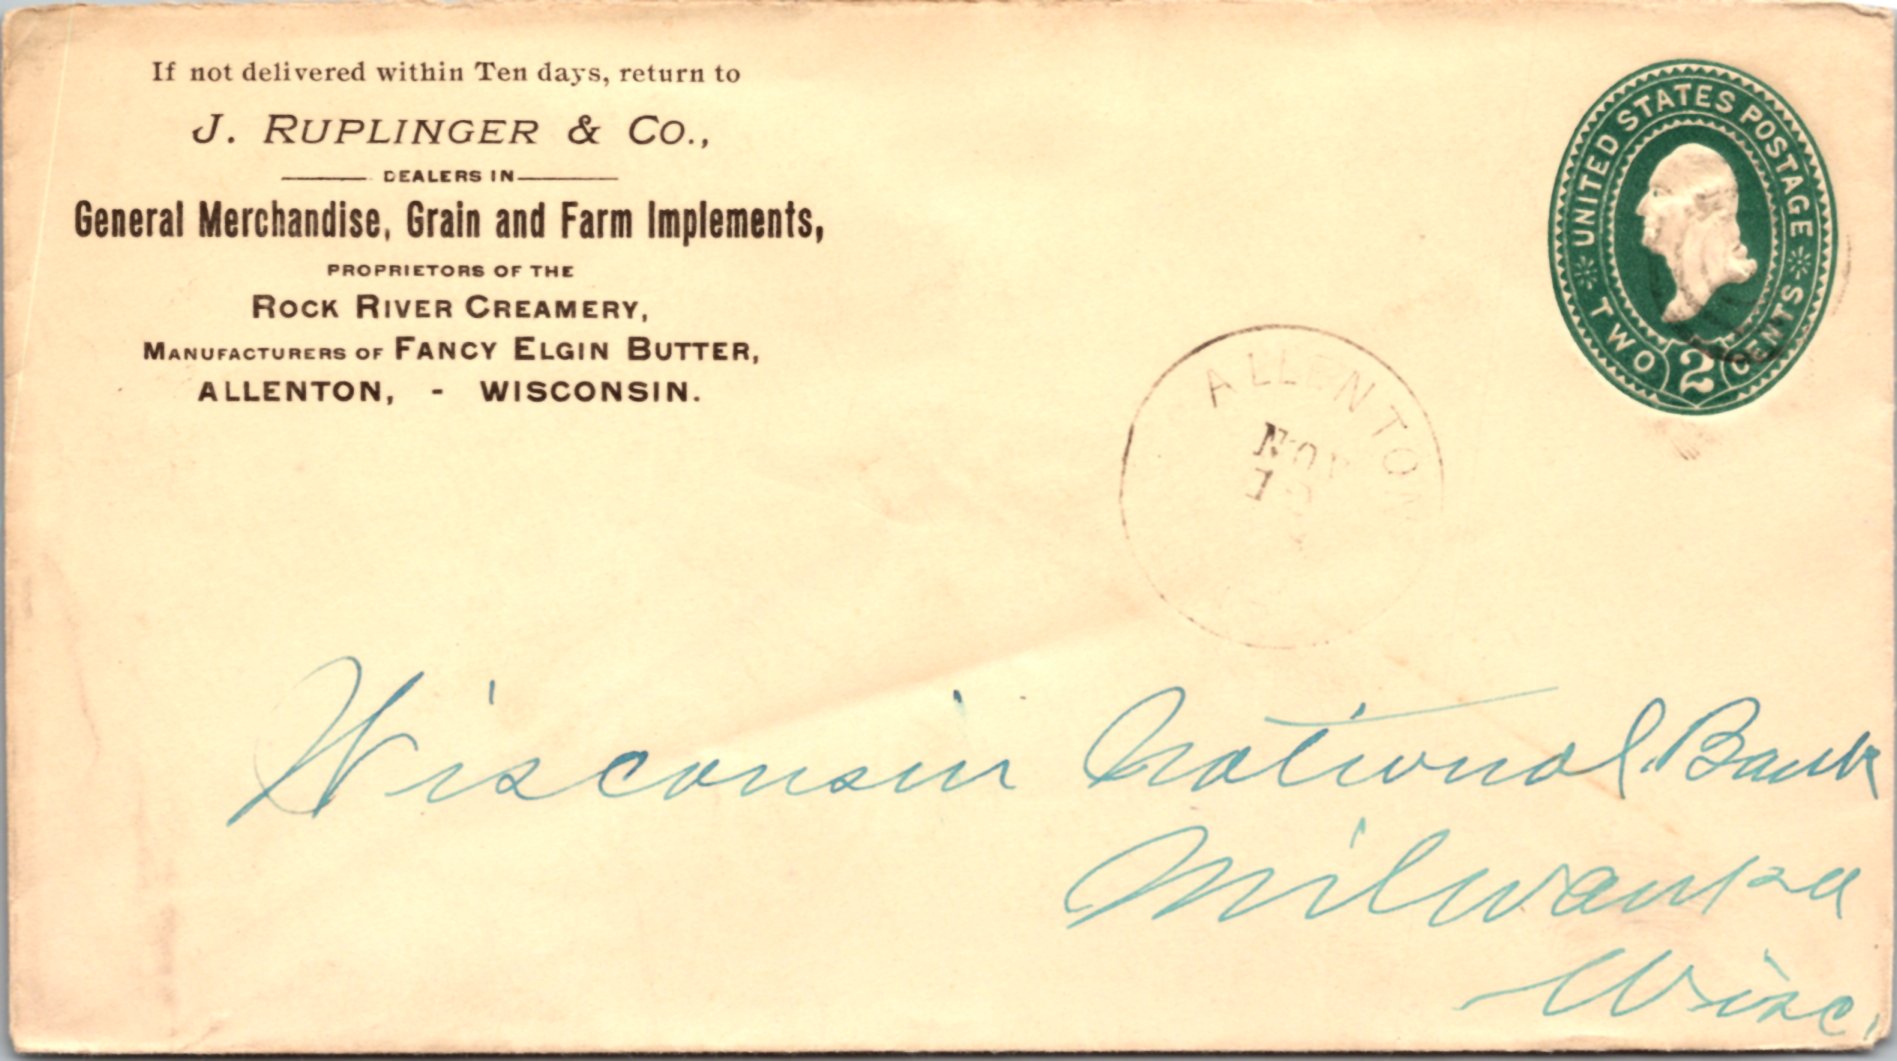 If not delivered within Ten days, return to
J. RUPLINGER & CO.,
DEALERS IN
General Merchandise, Grain and Farm Implements,
PROPRIETORS OF THE
ROCK RIVER CREAMERY,
MANUFACTURERS OF FANCY ELGIN BUTTER,
ALLENTON, - WISCONSIN.
UNITED STATES POSTAGE
TWO 2 CENTS
ALLENTON
NOV
Wisconsin National Bank
Milwaukee
Wisc.